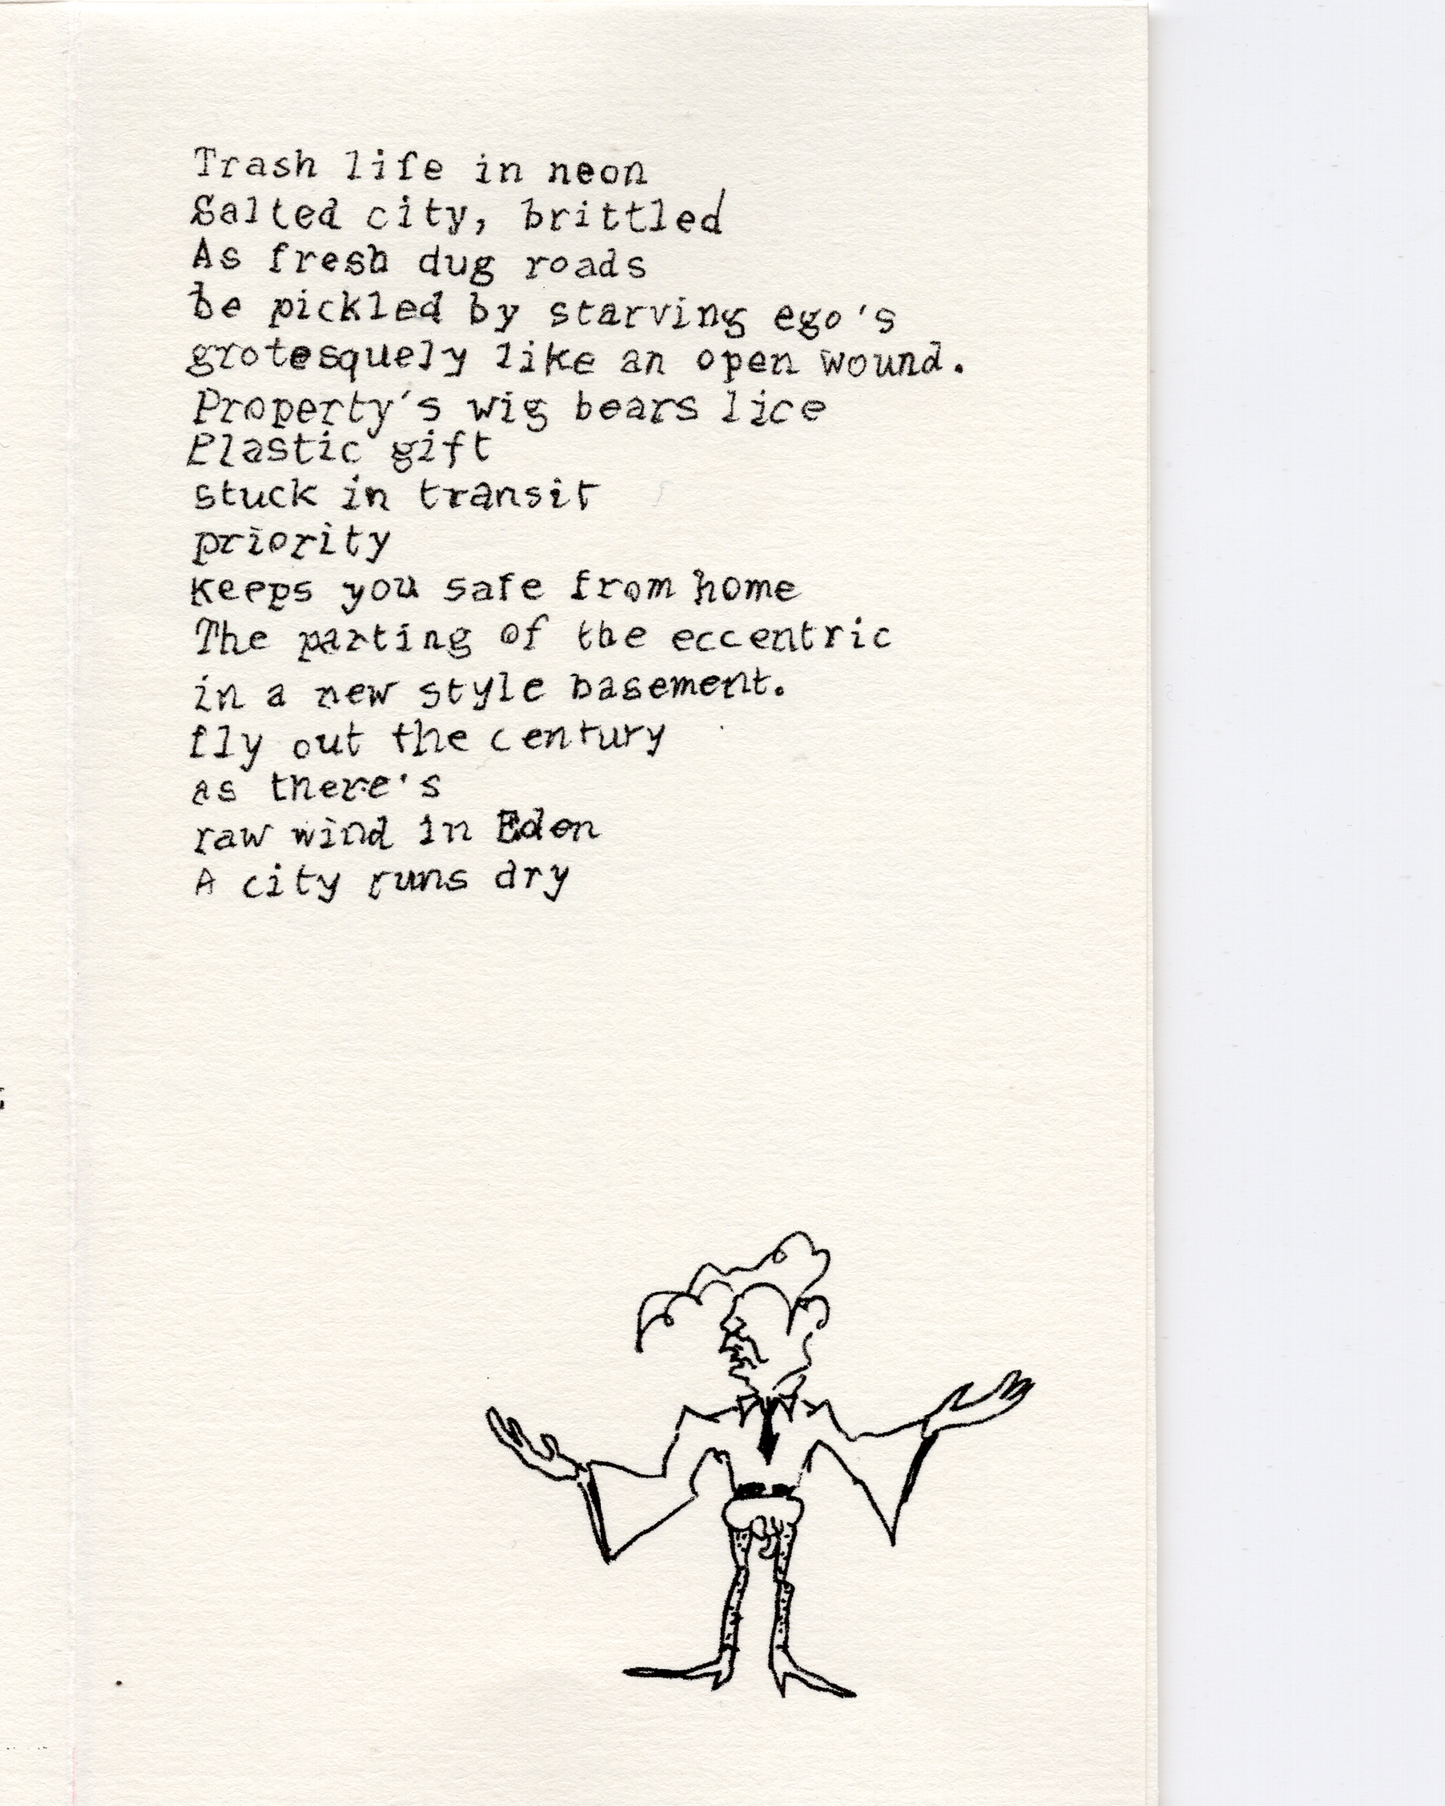 Trash life in neon
Salted city, brittled
As fresh dug roads
be pickled by starving ego's
grotesquely like an open wound.
Property's wig bears lice
Plastic gift
stuck in transit
priority
keeps you safe from home
The parting of the eccentric
in a new style basement.
fly out the century
as there's
raw wind in Eden
A city runs dry